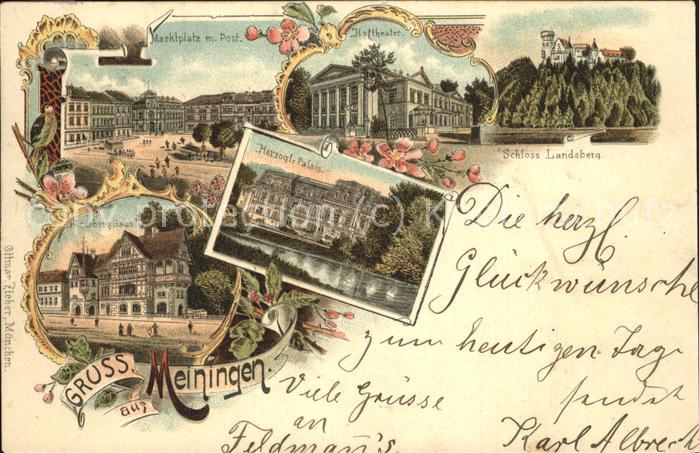 Marktplatz m. Post.
Hoftheater.
Schloss Landsberg.
Herzogl. Palais.
Haus
Ottmar Zieher, München.
GRUSS
aus
Meiningen.
Die herzl
Glückwünsche
zum heutigen Tage
sendet
Karl Albrech
Viele Grüsse
an
Feldman's